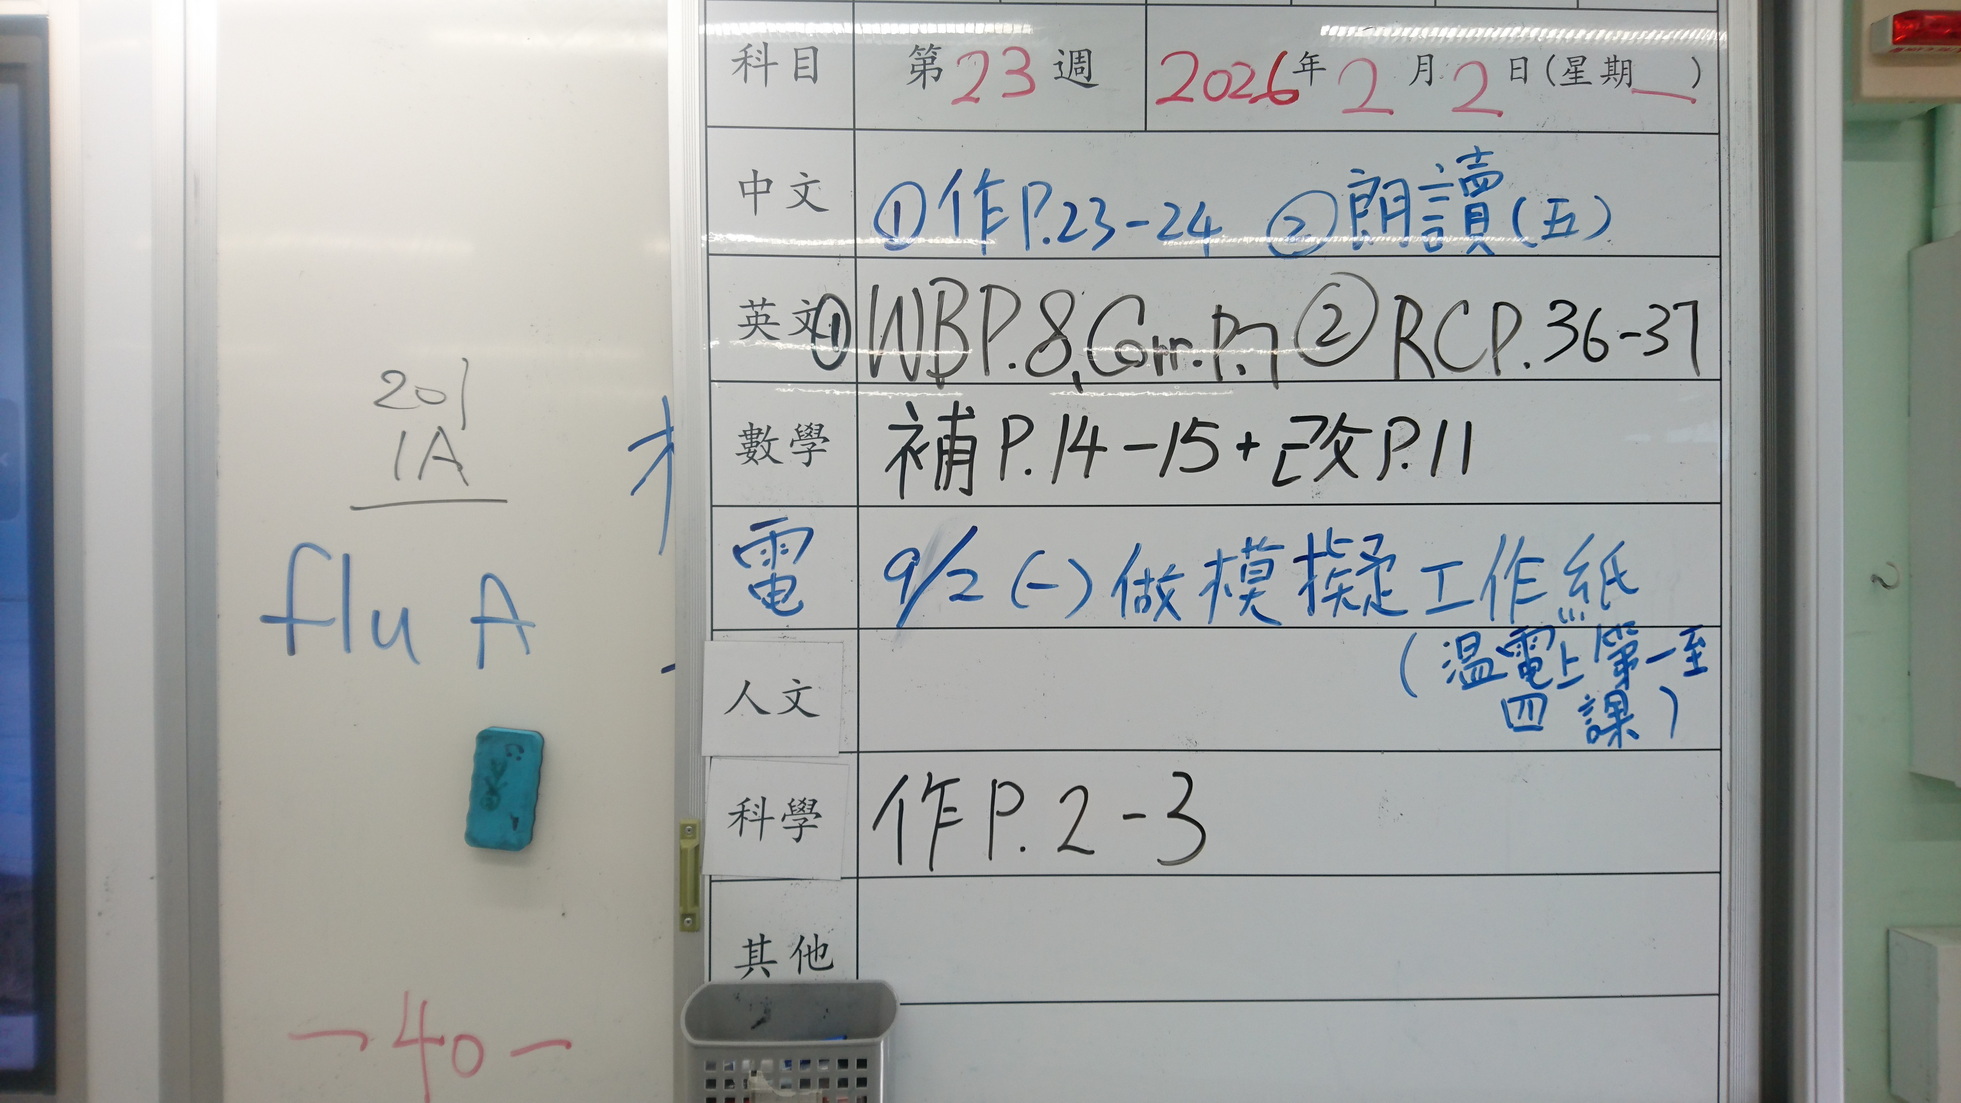 科目 第23週 2026年2月2日(星期一)
中文 ①作P.23-24 ②朗讀(五)
英文 ①WBP.8、Corr.P.7 ②RCP.36-37
數學 補P.14-15+改P.11
電 9/2(一)做模擬工作紙
(溫電上第一至
四課)
人文
科學 作P.2-3
其他
201
1A
flu A
-40-